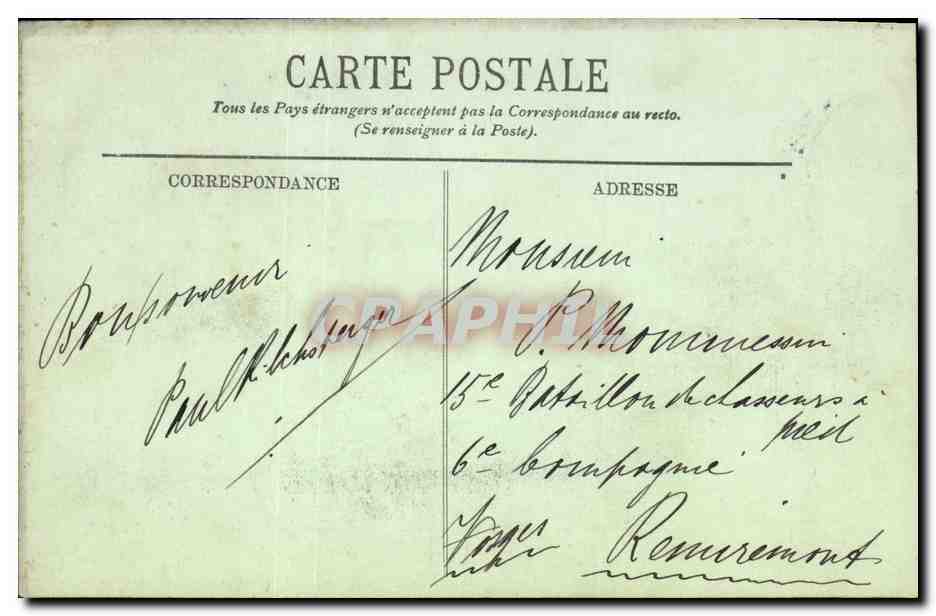 CARTE POSTALE
Tous les Pays étrangers n'acceptent pas la Correspondance au recto.
(Se renseigner à la Poste).
CORRESPONDANCE
Bon souvenir
Paul
ADRESSE
Monsieur
P. Mommessin
15e Bataillon de chasseurs à
pied
6e Compagnie
Vosges Remiremont